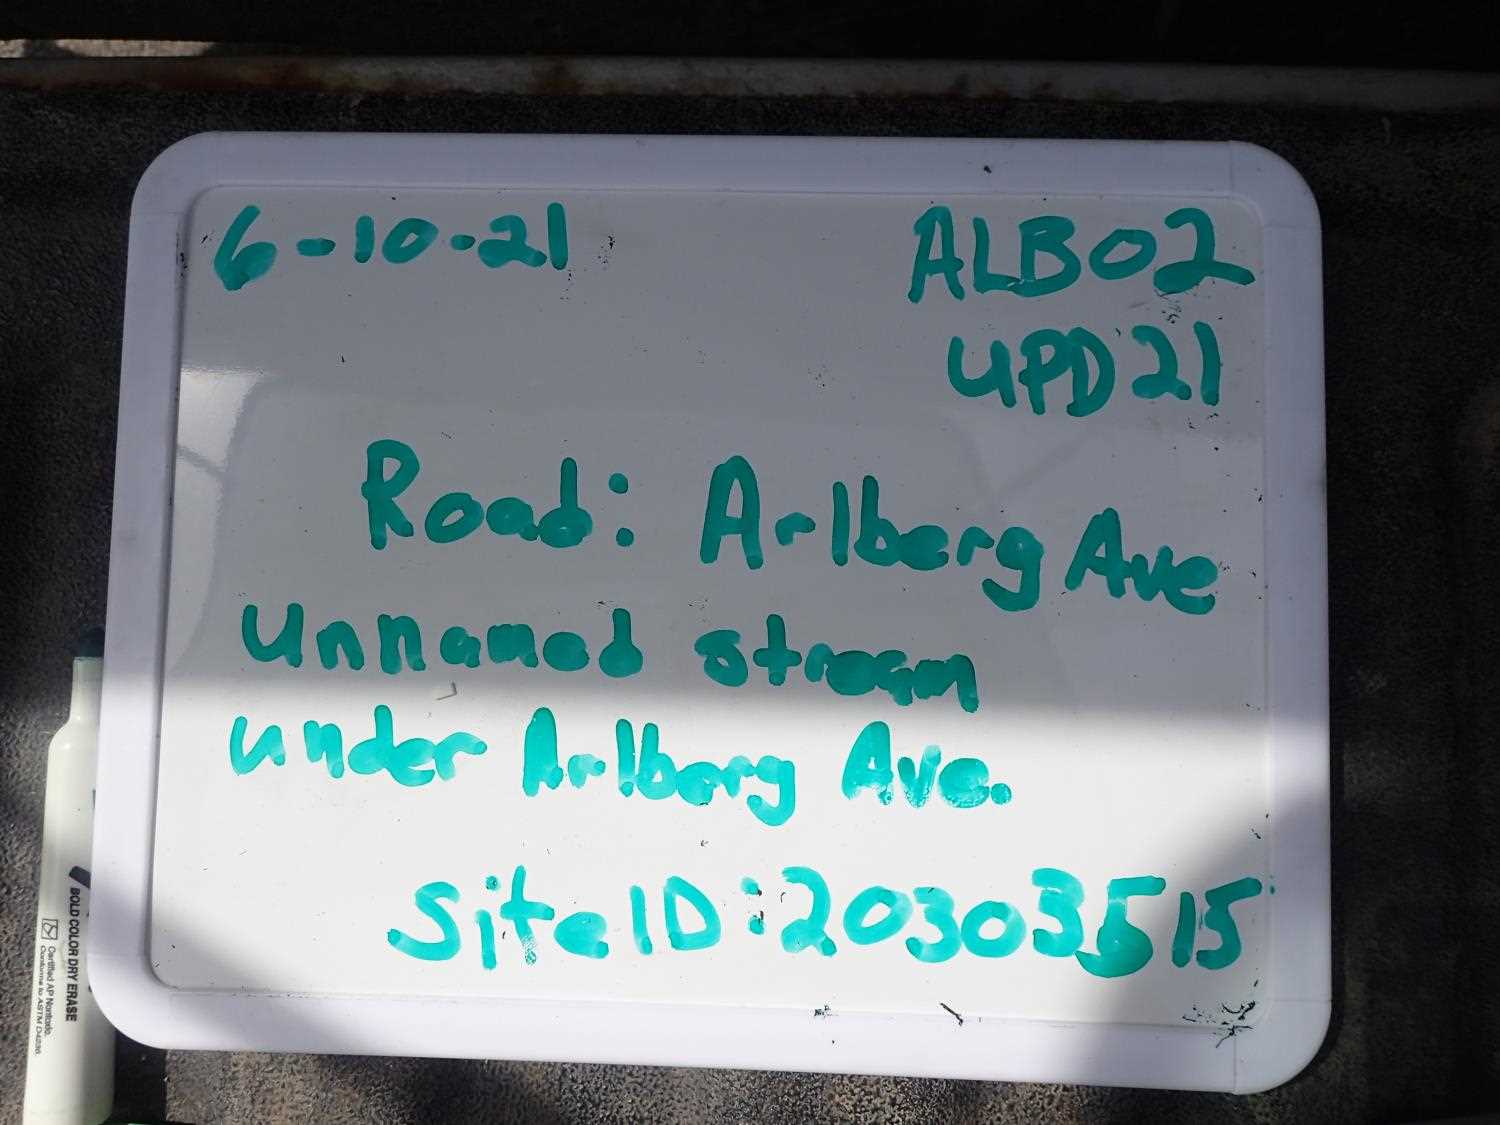 6-10-21
ALB02
UPD21
Road: Arlberg Ave
Unnamed stream
under Arlberg Ave.
Site ID: 20303515
BOLD COLOR DRY ERASE
Certified AP Nontoxic.
Conforms to ASTM D4236.